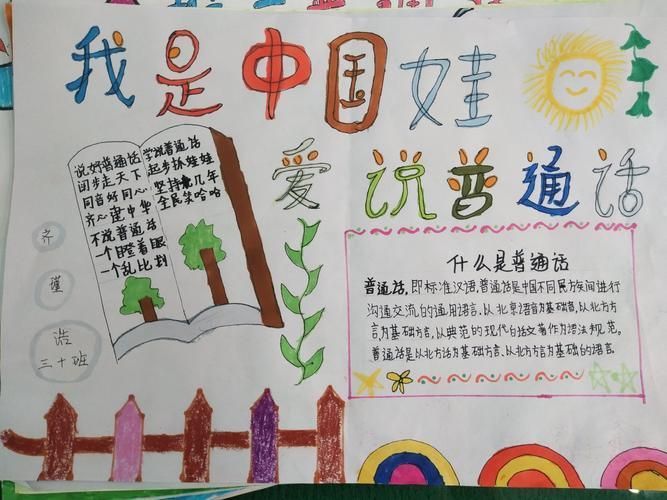 我是中国娃
爱说普通话
说好普通话
步走天下
同音好同心
齐心建中华
不说普通话
一个瞪着眼
一个乱比划
学说普通话
起步抓娃娃
坚持几年
全民笑哈哈
齐
浩
三十班
什么是普通话
普通话,即标准汉语,普通话是中国不同方间进行
沟通交流的通用语言,以北京语音为基础音,以北方方
言为基础方言,以典范的现代白话文著作为语法规范。
普通话是以北方话为基础方言,以北方方言为基础的语言.